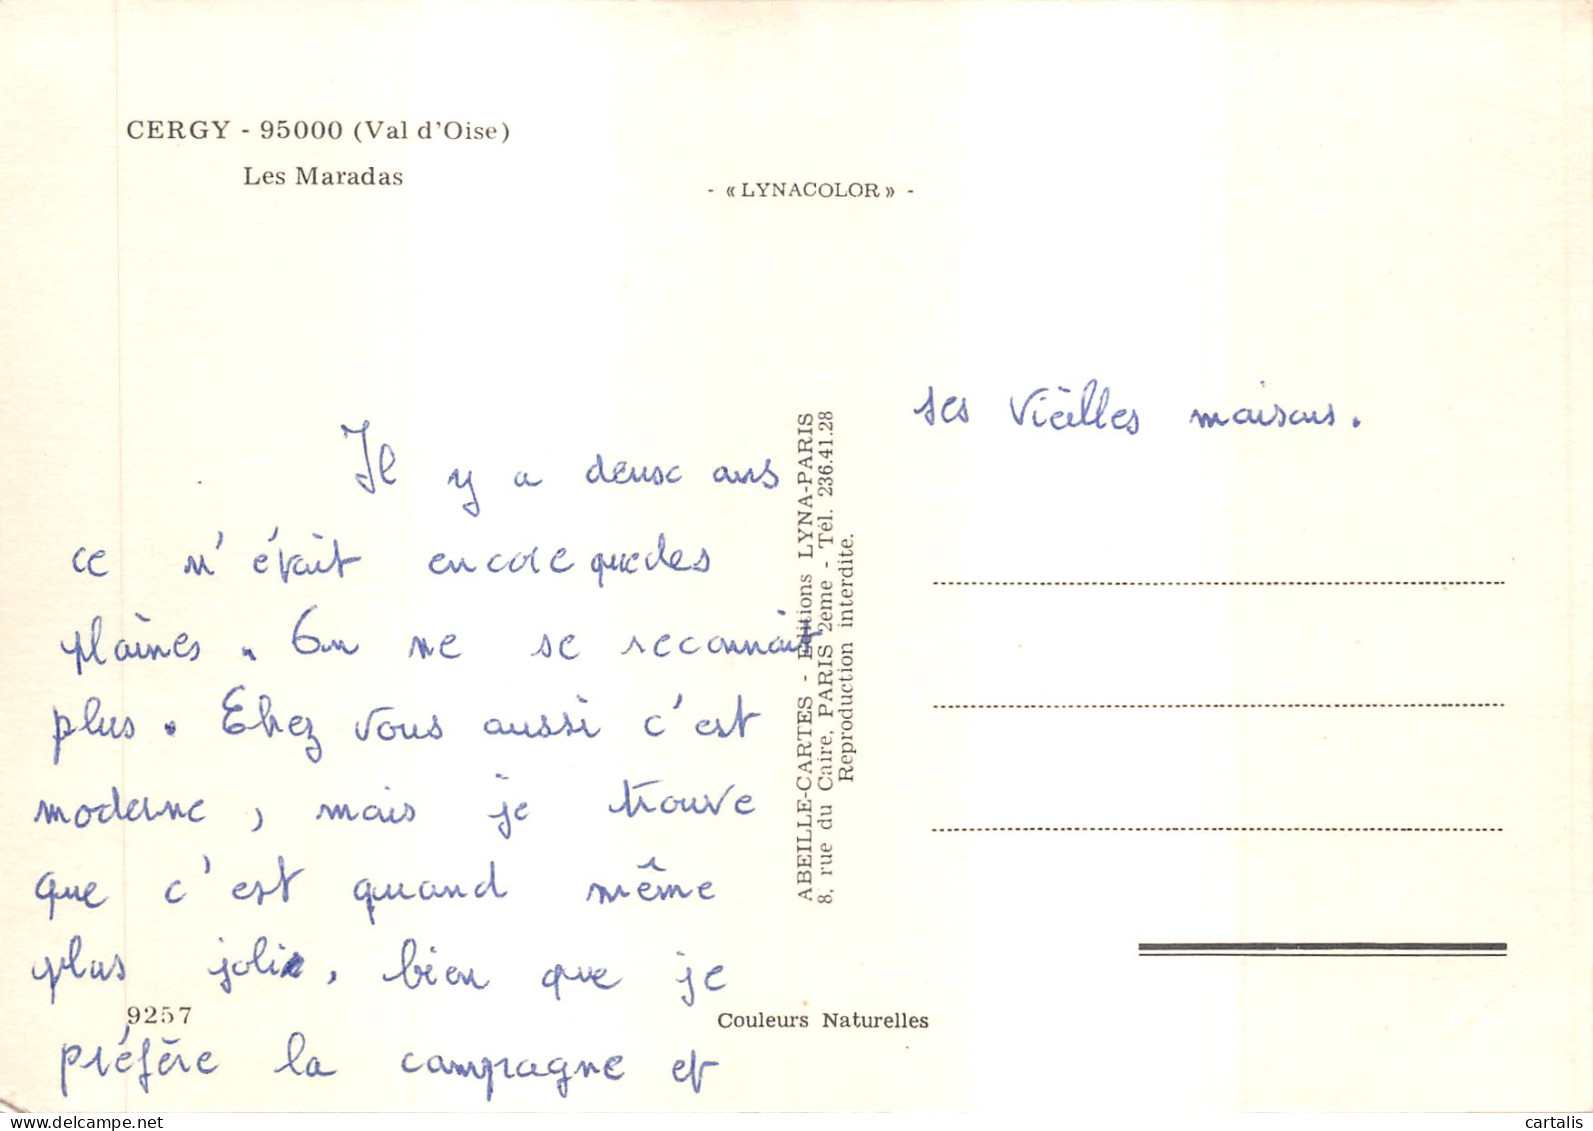 CERGY - 95000 (Val d'Oise)
Les Maradas
- « LYNACOLOR » -
Il y a deux ans
ce n'était encore que des
plaines. On ne se reconnait
plus. Chez vous aussi c'est
moderne, mais je trouve
que c'est quand même
plus joli, bien que je
préfère la campagne et
ses vieilles maisons.
9257
ABEILLE-CARTES - Editions LYNA-PARIS
8, rue du Caire, PARIS 2eme - Tél. 236.41.28
Reproduction interdite.
Couleurs Naturelles
delcampe.net
cartalis